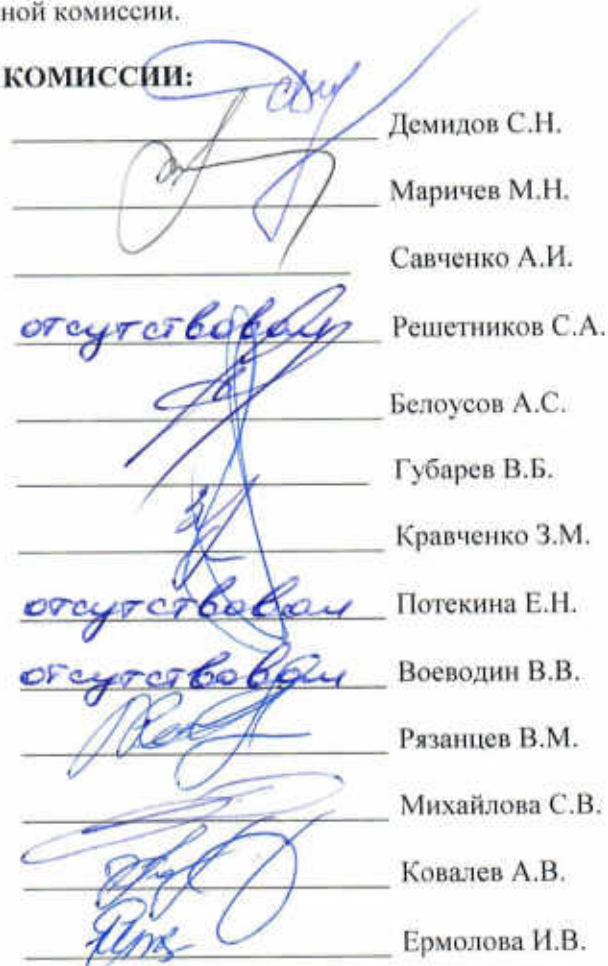 ной комиссии.
КОМИССИИ:
Демидов С.Н.
Маричев М.Н.
Савченко А.И.
отсутствовал Решетников С.А.
Белоусов А.С.
Губарев В.Б.
Кравченко З.М.
отсутствовал Потекина Е.Н.
отсутствовал Воеводин В.В.
Рязанцев В.М.
Михайлова С.В.
Ковалев А.В.
Ермолова И.В.